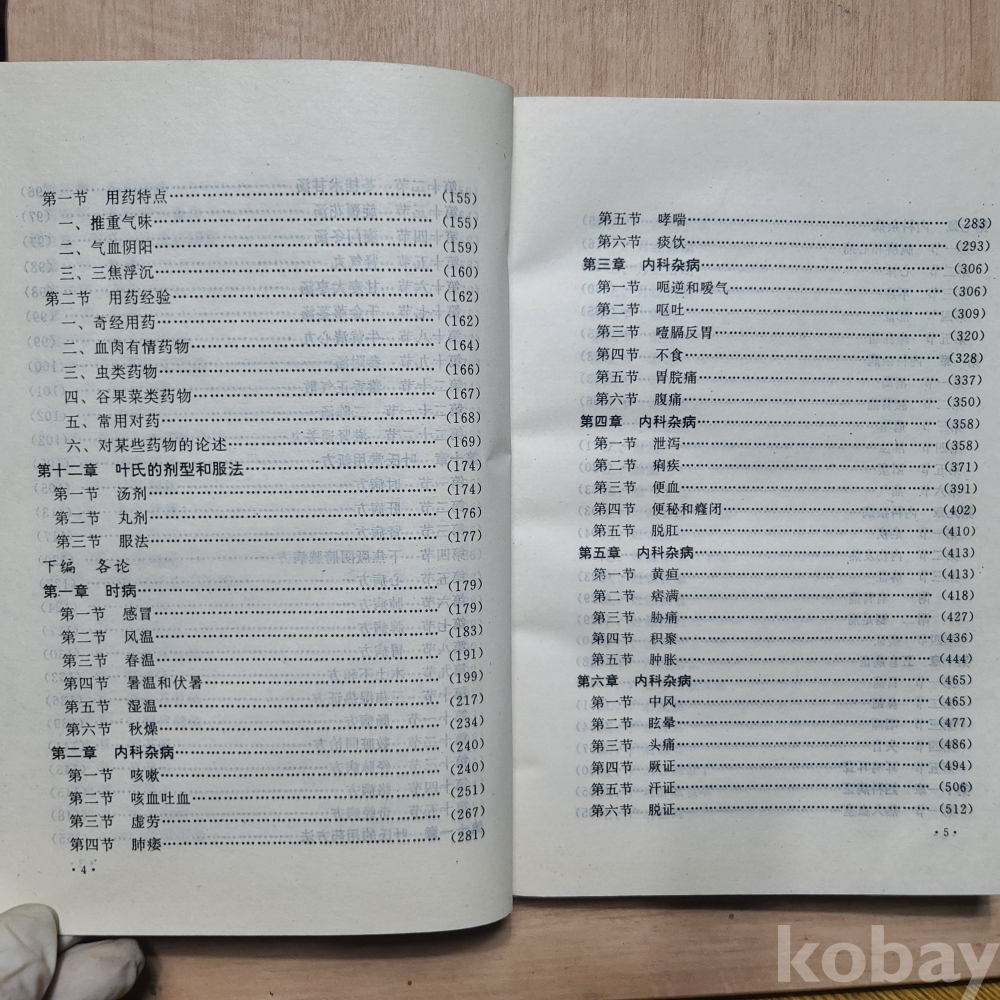 第一节 用药特点………………………………(155)
一、推重气味………………………………(155)
二、气血阴阳………………………………(159)
三、三焦浮沉………………………………(160)
第二节 用药经验………………………………(162)
一、奇经用药………………………………(162)
二、血肉有情药物………………………………(164)
三、虫类药物………………………………(166)
四、谷果菜类药物………………………………(167)
五、常用对药………………………………(168)
六、对某些药物的论述………………………………(169)
第十二章 叶氏的剂型和服法………………………………(174)
第一节 汤剂………………………………(174)
第二节 丸剂………………………………(176)
第三节 服法………………………………(177)
下编 各论
第一章 时病………………………………(179)
第一节 感冒………………………………(179)
第二节 风温………………………………(183)
第三节 春温………………………………(191)
第四节 暑温和伏暑………………………………(199)
第五节 湿温………………………………(217)
第六节 秋燥………………………………(234)
第二章 内科杂病………………………………(240)
第一节 咳嗽………………………………(240)
第二节 咳血吐血………………………………(251)
第三节 虚劳………………………………(267)
第四节 肺痿………………………………(281)
·4·
第五节 哮喘………………………………(283)
第六节 痰饮………………………………(293)
第三章 内科杂病………………………………(306)
第一节 呃逆和嗳气………………………………(306)
第二节 呕吐………………………………(309)
第三节 噎膈反胃………………………………(320)
第四节 不食………………………………(328)
第五节 胃脘痛………………………………(337)
第六节 腹痛………………………………(350)
第四章 内科杂病………………………………(358)
第一节 泄泻………………………………(358)
第二节 痢疾………………………………(371)
第三节 便血………………………………(391)
第四节 便秘和癃闭………………………………(402)
第五节 脱肛………………………………(410)
第五章 内科杂病………………………………(413)
第一节 黄疸………………………………(413)
第二节 痞满………………………………(418)
第三节 胁痛………………………………(427)
第四节 积聚………………………………(436)
第五节 肿胀………………………………(444)
第六章 内科杂病………………………………(465)
第一节 中风………………………………(465)
第二节 眩晕………………………………(477)
第三节 头痛………………………………(486)
第四节 厥证………………………………(494)
第五节 汗证………………………………(506)
第六节 脱证………………………………(512)
·5·
kobay